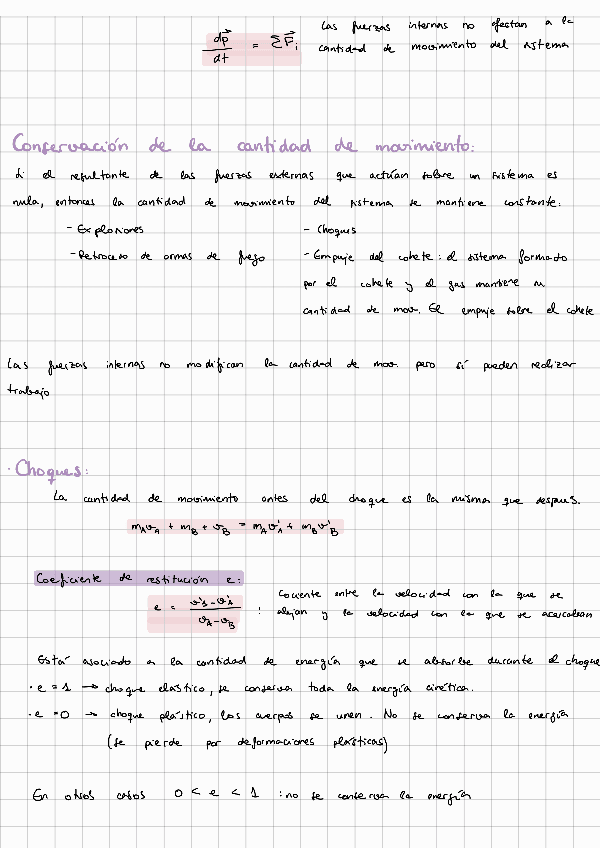 Las fuerzas internas no afectan a la
dp⃗/dt = ΣF⃗i cantidad de movimiento del sistema
Conservación de la cantidad de movimiento:
Si el resultante de las fuerzas externas que actúan sobre un sistema es
nula, entonces la cantidad de movimiento del sistema se mantiene constante:
- Explosiones - Choques
- Retroceso de armas de fuego - Empuje del cohete: el sistema formado
por el cohete y el gas mantiene su
cantidad de mov. El empuje sobre el cohete
Las fuerzas internas no modifican la cantidad de mov. pero sí pueden realizar
trabajo
· Choques:
La cantidad de movimiento antes del choque es la misma que después.
mAvA + mB + vB = mAv'A + mBv'B
Coeficiente de restitución e:
e = (v'B - v'A)/(vA - vB) : Cociente entre la velocidad con la que se
alejan y la velocidad con la que se acercaban
Está asociado a la cantidad de energía que se absorbe durante el choque
· e = 1 → choque elástico, se conserva toda la energía cinética.
· e = 0 → choque plástico, los cuerpos se unen. No se conserva la energía
(se pierde por deformaciones plásticas)
En otros casos 0 < e < 1 : no se conserva la energía